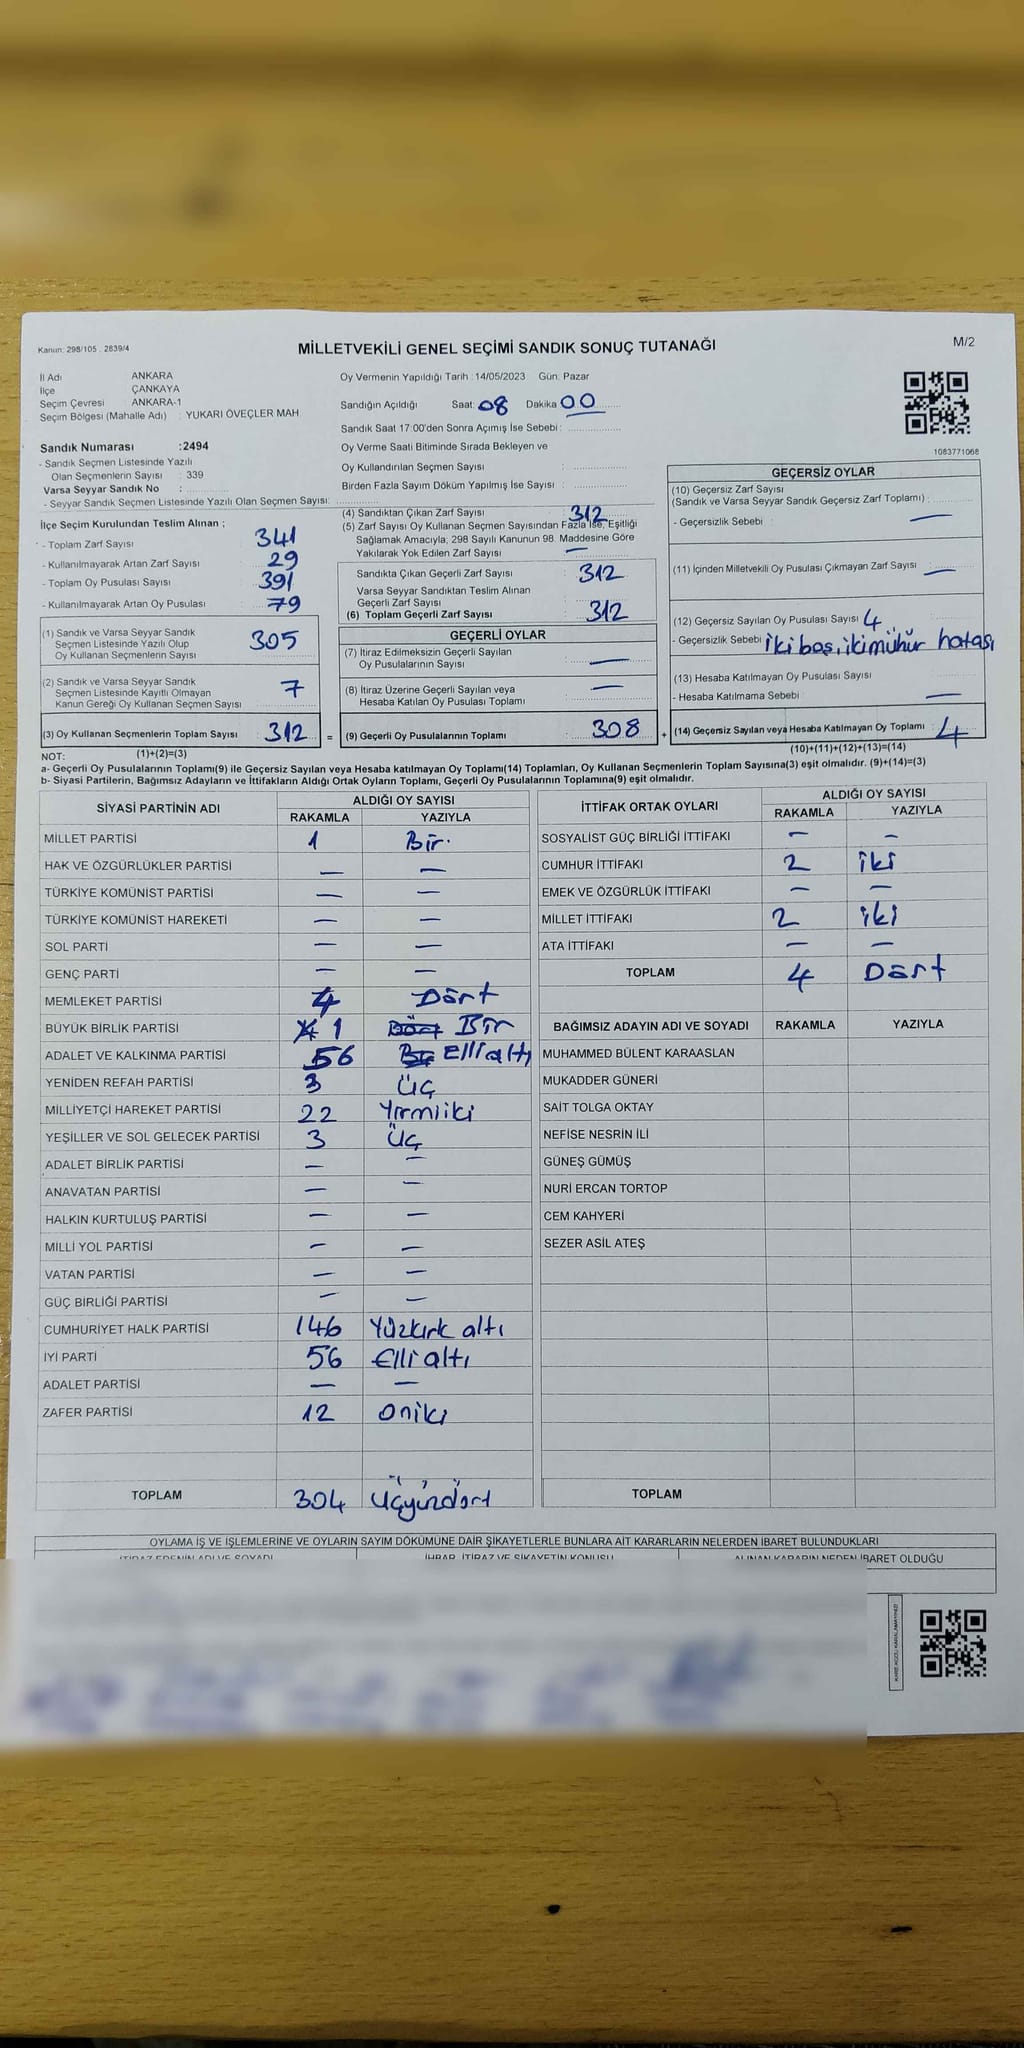 Kanun: 298/105 . 2839/4
MİLLETVEKİLİ GENEL SEÇİMİ SANDIK SONUÇ TUTANAĞI
M/2
İl Adı ANKARA
İlçe ÇANKAYA
Seçim Çevresi ANKARA-1
Seçim Bölgesi (Mahalle Adı) : YUKARI ÖVEÇLER MAH
Sandık Numarası :2494
- Sandık Seçmen Listesinde Yazılı
Olan Seçmenlerin Sayısı : 339
Varsa Seyyar Sandık No :
- Seyyar Sandık Seçmen Listesinde Yazılı Olan Seçmen Sayısı:
Oy Vermenin Yapıldığı Tarih : 14/05/2023 Gün: Pazar
Sandığın Açıldığı Saat: 08 Dakika 00
Sandık Saat 17:00'den Sonra Açımış İse Sebebi :
Oy Verme Saati Bitiminde Sırada Bekleyen ve
Oy Kullandırılan Seçmen Sayısı :
Birden Fazla Sayım Döküm Yapılmış İse Sayısı :
1083771068
İlçe Seçim Kurulundan Teslim Alınan ;
- Toplam Zarf Sayısı 341
- Kullanılmayarak Artan Zarf Sayısı : 29
- Toplam Oy Pusulası Sayısı 391
- Kullanılmayarak Artan Oy Pusulası : 79
(1) Sandık ve Varsa Seyyar Sandık
Seçmen Listesinde Yazılı Olup
Oy Kullanan Seçmenlerin Sayısı 305
(2) Sandık ve Varsa Seyyar Sandık
Seçmen Listesinde Kayıtlı Olmayan
Kanun Gereği Oy Kullanan Seçmen Sayısı : 7
(3) Oy Kullanan Seçmenlerin Toplam Sayısı 312 =
(4) Sandıktan Çıkan Zarf Sayısı : 312
(5) Zarf Sayısı Oy Kullanan Seçmen Sayısından Fazla İse, Eşitliği
Sağlamak Amacıyla; 298 Sayılı Kanunun 98. Maddesine Göre
Yakılarak Yok Edilen Zarf Sayısı : —
Sandıkta Çıkan Geçerli Zarf Sayısı : 312
Varsa Seyyar Sandıktan Teslim Alınan
Geçerli Zarf Sayısı :
(6) Toplam Geçerli Zarf Sayısı : 312
GEÇERLİ OYLAR
(7) İtiraz Edilmeksizin Geçerli Sayılan
Oy Pusulalarının Sayısı : —
(8) İtiraz Üzerine Geçerli Sayılan veya
Hesaba Katılan Oy Pusulası Toplamı : —
(9) Geçerli Oy Pusulalarının Toplamı : 308 +
GEÇERSİZ OYLAR
(10) Geçersiz Zarf Sayısı
(Sandık ve Varsa Seyyar Sandık Geçersiz Zarf Toplamı) :
- Geçersizlik Sebebi : —
(11) İçinden Milletvekili Oy Pusulası Çıkmayan Zarf Sayısı : —
(12) Geçersiz Sayılan Oy Pusulası Sayısı : 4
- Geçersizlik Sebebi : iki boş, iki mühür hatası
(13) Hesaba Katılmayan Oy Pusulası Sayısı :
- Hesaba Katılmama Sebebi : —
(14) Geçersiz Sayılan veya Hesaba Katılmayan Oy Toplamı : 4
NOT: (1)+(2)=(3)
(10)+(11)+(12)+(13)=(14)
a- Geçerli Oy Pusulalarının Toplamı(9) ile Geçersiz Sayılan veya Hesaba katılmayan Oy Toplamı(14) Toplamları, Oy Kullanan Seçmenlerin Toplam Sayısına(3) eşit olmalıdır. (9)+(14)=(3)
b- Siyasi Partilerin, Bağımsız Adayların ve İttifakların Aldığı Ortak Oyların Toplamı, Geçerli Oy Pusulalarının Toplamına(9) eşit olmalıdır.
SİYASİ PARTİNİN ADI ALDIĞI OY SAYISI
RAKAMLA YAZIYLA
MİLLET PARTİSİ 1 Bir.
HAK VE ÖZGÜRLÜKLER PARTİSİ — —
TÜRKİYE KOMÜNİST PARTİSİ — —
TÜRKİYE KOMÜNİST HAREKETİ — —
SOL PARTİ — —
GENÇ PARTİ — —
MEMLEKET PARTİSİ 4 Dört
BÜYÜK BİRLİK PARTİSİ 1 Bir
ADALET VE KALKINMA PARTİSİ 56 Elli altı
YENİDEN REFAH PARTİSİ 3 Üç
MİLLİYETÇİ HAREKET PARTİSİ 22 Yirmiiki
YEŞİLLER VE SOL GELECEK PARTİSİ 3 Üç
ADALET BİRLİK PARTİSİ — —
ANAVATAN PARTİSİ — —
HALKIN KURTULUŞ PARTİSİ — —
MİLLİ YOL PARTİSİ — —
VATAN PARTİSİ — —
GÜÇ BİRLİĞİ PARTİSİ — —
CUMHURİYET HALK PARTİSİ 146 Yüzkırk altı
İYİ PARTİ 56 Elli altı
ADALET PARTİSİ — —
ZAFER PARTİSİ 12 Oniki
TOPLAM 304 Üçyüzdört
İTTİFAK ORTAK OYLARI ALDIĞI OY SAYISI
RAKAMLA YAZIYLA
SOSYALİST GÜÇ BİRLİĞİ İTTİFAKI — —
CUMHUR İTTİFAKI 2 iki
EMEK VE ÖZGÜRLÜK İTTİFAKI — —
MİLLET İTTİFAKI 2 iki
ATA İTTİFAKI — —
TOPLAM 4 Dört
BAĞIMSIZ ADAYIN ADI VE SOYADI RAKAMLA YAZIYLA
MUHAMMED BÜLENT KARAASLAN
MUKADDER GÜNERİ
SAİT TOLGA OKTAY
NEFİSE NESRİN İLİ
GÜNEŞ GÜMÜŞ
NURİ ERCAN TORTOP
CEM KAHYERİ
SEZER ASİL ATEŞ
TOPLAM
OYLAMA İŞ VE İŞLEMLERİNE VE OYLARIN SAYIM DÖKÜMÜNE DAİR ŞİKAYETLERLE BUNLARA AİT KARARLARIN NELERDEN İBARET BULUNDUKLARI
İTİRAZ EDENİN ADI VE SOYADI İHBAR, İTİRAZ VE ŞİKAYETİN KONUSU ALINAN KARARIN NEDEN İBARET OLDUĞU